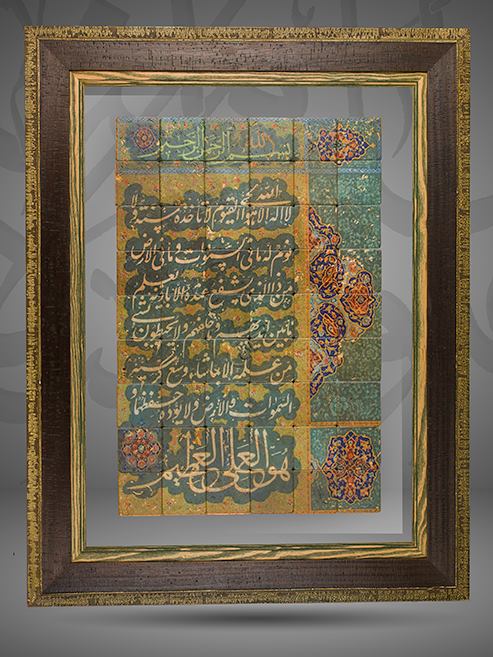 بسم الله الرحمن الرحیم
الله
لا اله الا هو الحی القیوم لا تاخذه سنة و لا
نوم له ما فی السموات و ما فی الارض
من ذا الذی یشفع عنده الا باذنه یعلم
ما بین ایدیهم و ما خلفهم و لا یحیطون بشیء
من علمه الا بما شاء وسع کرسیه
السموات و الارض و لا یوده حفظهما و
هو العلی العظیم